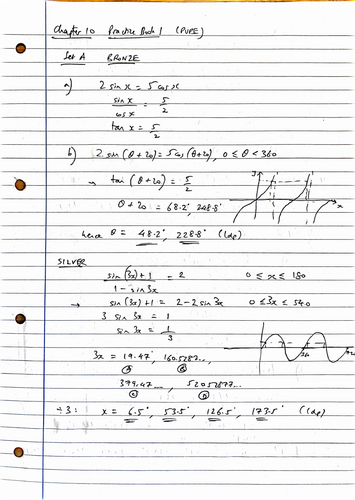 Chapter 10 Practice Book 1 (PURE)
Set A BRONZE
a) 2 sin x = 5 cos x
sin x / cos x = 5/2
tan x = 5/2
b) 2 sin (θ + 20) = 5 cos (θ + 20), 0 ≤ θ < 360
→ tan (θ + 20) = 5/2
θ + 20 = 68.2°, 248.8°
hence θ = 48.2°, 228.8° (1dp)
SILVER
(sin (3x) + 1) / (1 - sin 3x) = 2 0 ≤ x ≤ 180
→ sin (3x) + 1 = 2 - 2 sin 3x 0 ≤ 3x ≤ 540
3 sin 3x = 1
sin 3x = 1/3
3x = 19.47°, 160.5287...
379.47..., 520.52877...
÷3: x = 6.5°, 53.5°, 126.5°, 173.5° (1dp)